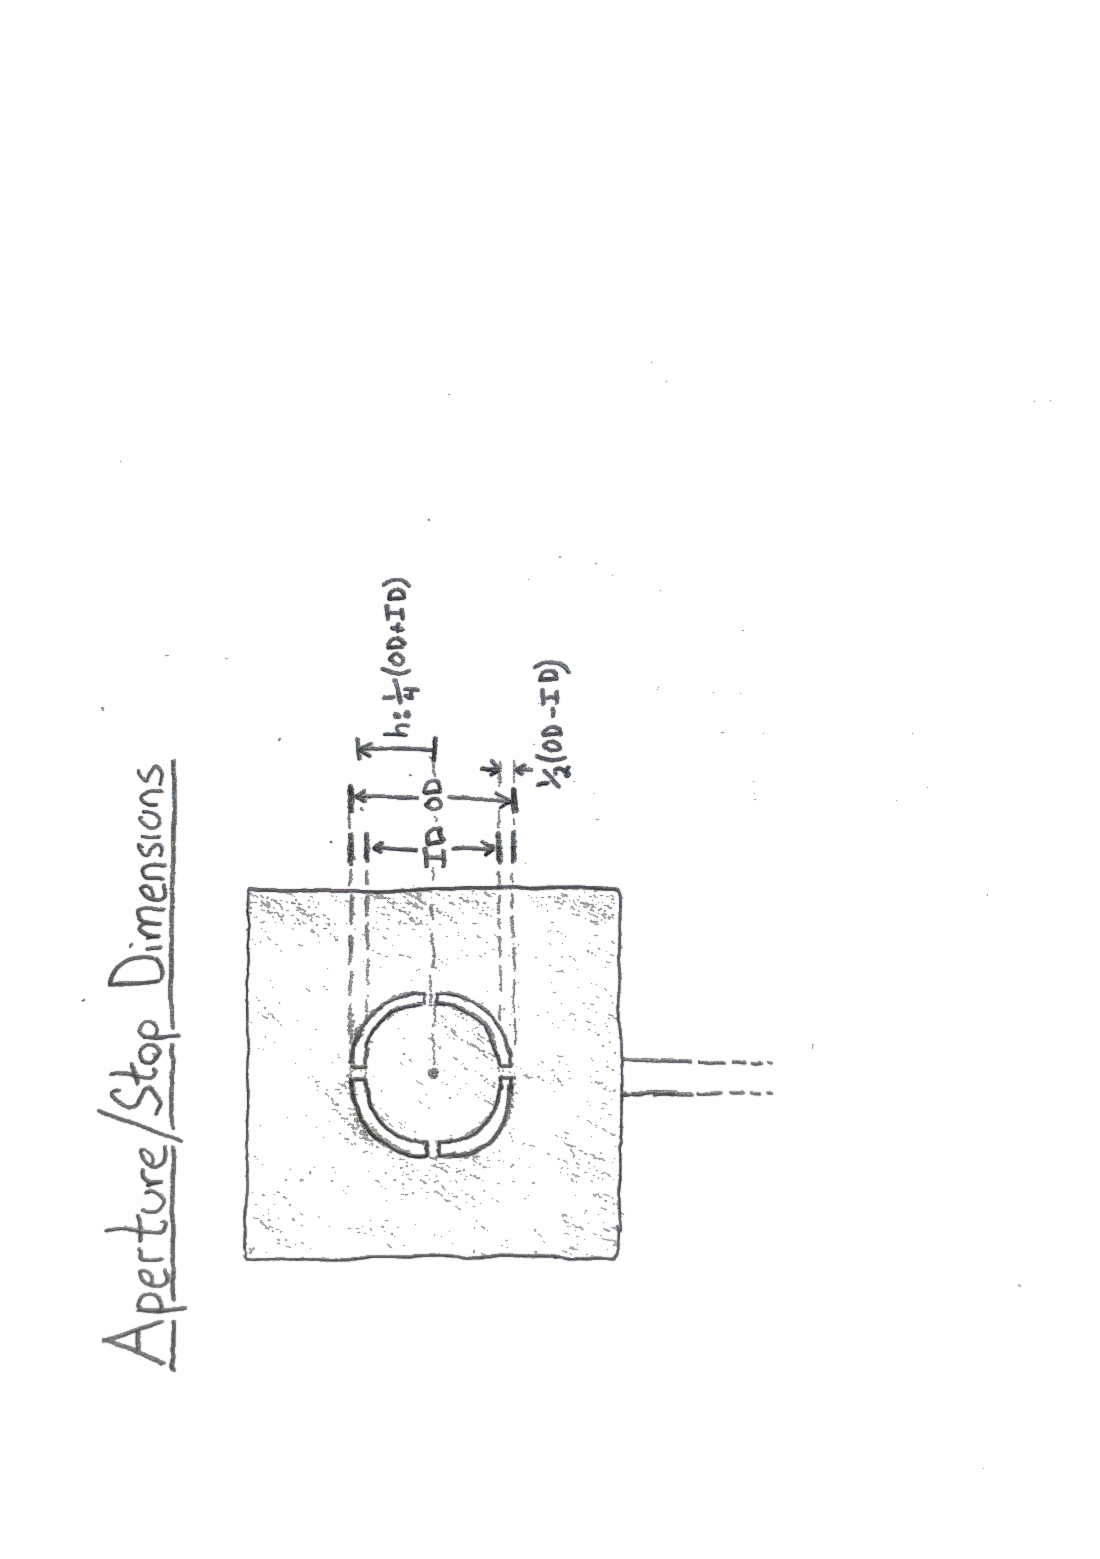 Aperture/Stop Dimensions
h: ¼(OD+ID)
OD
ID
½(OD-ID)